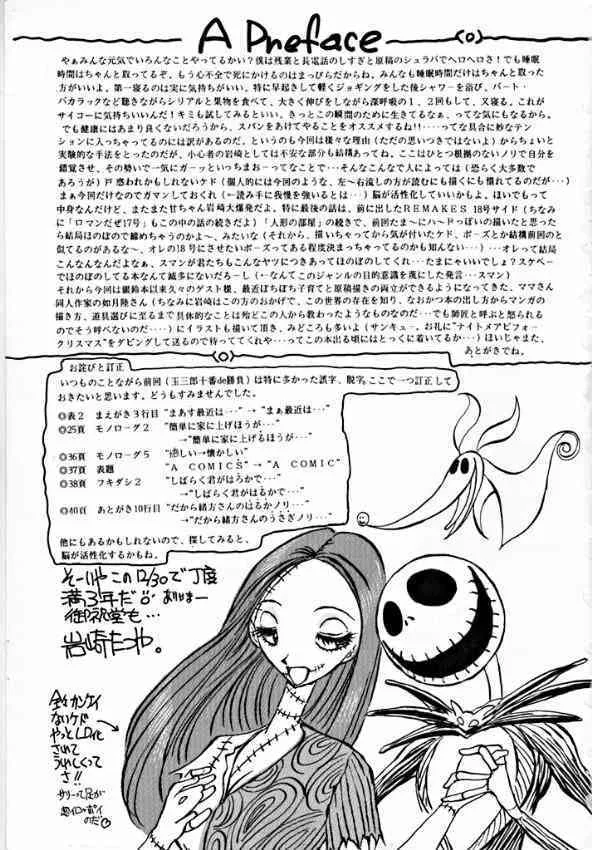 A Preface
やぁみんな元気でいろんなことやってるかい?僕は残業と長電話のしすぎと原稿のシュラバでヘロヘロさ!でも睡眠
時間はちゃんと取ってるぞ、もう心不全で死にかけるのはまっぴらだからね。みんなも睡眠時間だけはちゃんと取った
方がいいよ。第一寝るのは実に気持ちがいい。特に早起きして軽くジョギングをした後シャワーを浴び、バート・
バカラックなど聴きながらシリアルと果物を食べて、大きく伸びをしながら深呼吸の1、2回もして、又寝る。これが
サイコーに気持ちいいんだ!キミも試してみるといい。きっとこの瞬間のために生きてるなぁ、って気になるから。
でも健康にはあまり良くないだろうから、スパンをあけてやることをオススメするね!!‥‥って具合に妙なテン
ションに入っちゃってるのには訳があるのだ。というのも今回は様々な理由(ただの思いつきではないよ)からちょいと
実験的な手法をとったのだが、小心者の岩崎としては不安な部分も結構あってね。ここはひとつ根拠のないノリで自分を
錯覚させ、その勢いで一気にガーッといっちまおーってなことで‥‥そんなこんなで人によっては(恐らく大多数で
あろうが)戸惑われかもしれないケド(個人的には今回のような、左〜右流しの方が読むにも描くにも慣れてるのだが‥‥)
まぁ今回だけなのでガマンしておくれ(←読み手に我慢を強いるとは‥‥)脳が活性化していいかもよ。ほいでもって
中身なんだけど、またまた甘ちゃん岩崎大爆発だよ。特に最後の話は、前に出したREMAKES 18号サイド(ちなみ
に「ロマンだぜ17号」もこの中の話の続きだよ)「人形の部屋」の続きで、前回たま〜にハードっぽいの描いたと思った
ら結局ほのぼので纏めちゃうのかよ〜、みたいな(くそれから、描いちゃってから気が付いたケド、ポーズとか結構前回のと
似てるのがあるな〜、オレの18号にさせたいポーズってある程度決まっちゃってるのかも知んない)‥‥オレって結局
こんなんなんだよなぁ、スマンが君たちもこんなヤツにつきあってほのぼのしてくれ‥‥たまにゃいいでしょ?スケベー
でほのぼのしてる本なんて滅多にないだろーし(←なんてこのジャンルの目的意識を蔑にした発言‥‥スマン)
それから今回は銀鈴本以来久々のゲスト様、最近ぼちぼち子育てと原稿描きの両立ができるようになってきた、ママさん
同人作家の如月陸さん(ちなみに岩崎はこの方のおかげで、この世界の存在を知り、なおかつ本の出し方からマンガの
描き方、道具選びに至るまで具体的なことは殆どこの人から教わったようなものなのだ‥‥でも師匠と呼ぶと怒られる
のでそう呼べないのだ‥‥)にイラストも描いて頂き、みどころも多いよ(サンキュー。お礼に"ナイトメアビフォー
クリスマス"をダビングして送るので待っててくれや‥‥ってこの本出る頃にはとっくに着いてるか‥‥)ほいじゃまた、
あとがきでね。
お詫びと訂正
いつものことながら前回(玉三郎十番de勝負)は特に多かった誤字、脱字。ここで一つ訂正して
おきたいと思います。どうもすみませんでした。
◎表2 まえがき3行目 "まあす最近は‥‥" → "まぁ最近は‥‥"
◎25頁 モノローグ2 "簡単に家に上げほうが‥‥"
→"簡単に家に上げるほうが‥‥"
◎36頁 モノローグ5 "癒しい→懐かしい"
◎37頁 表題 "A COMICS" → "A COMIC"
◎38頁 フキダシ2 "しばらく君がはろかで‥‥"
→"しばらく君がはるかで‥‥"
◎40頁 あとがき10行目 "だから緒方さんのはるかノリ‥‥"
→"だから緒方さんのうさぎノリ‥‥"
他にもあるかもしれないので、探してみると、
脳が活性化するかもね。
そーいやこの12/30で丁度
満3年だ
岩崎たつや。
全々カンケイ
ないケド
やっとLD化
されて
うれしくって
さ!!
サリーって足が